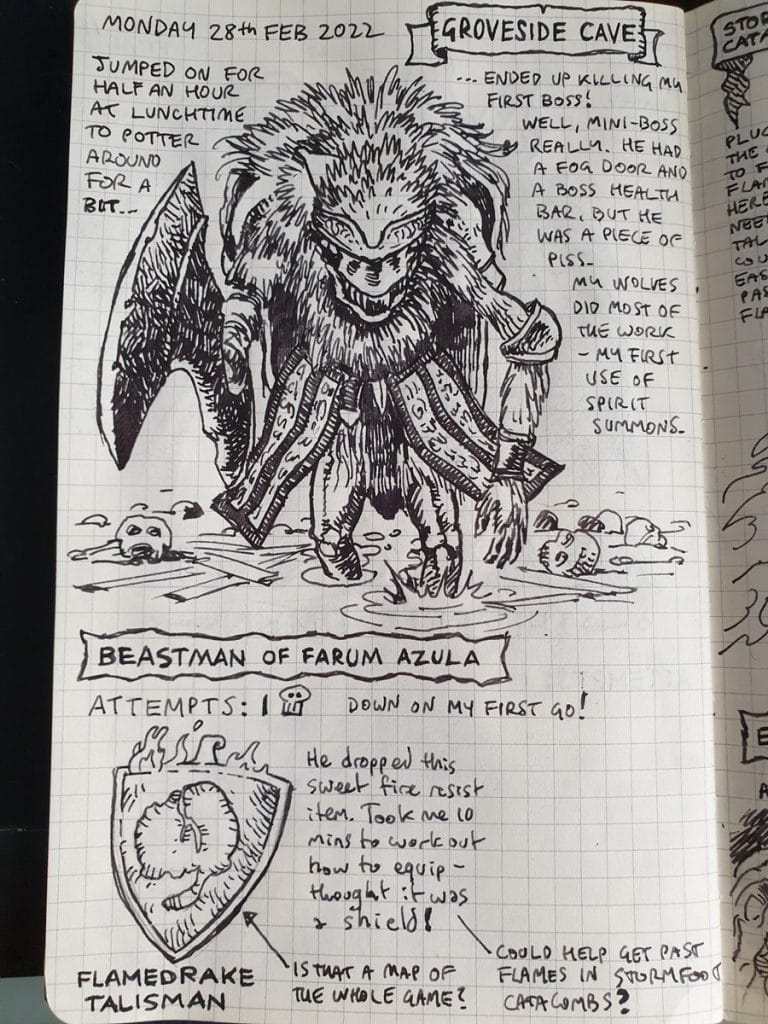 MONDAY 28TH FEB 2022
GROVESIDE CAVE
JUMPED ON FOR
HALF AN HOUR
AT LUNCHTIME
TO POTTER
AROUND
FOR A
BIT...
... ENDED UP KILLING MY
FIRST BOSS!
WELL, MINI-BOSS
REALLY. HE HAD
A FOG DOOR AND
A BOSS HEALTH
BAR, BUT HE
WAS A PIECE OF
PISS.
MY WOLVES
DID MOST OF
THE WORK
- MY FIRST
USE OF
SPIRIT
SUMMONS.
BEASTMAN OF FARUM AZULA
ATTEMPTS: 1
DOWN ON MY FIRST GO!
He dropped this
sweet fire resist
item. Took me 10
mins to work out
how to equip -
thought it was
a shield!
FLAMEDRAKE
TALISMAN
IS THAT A MAP OF
THE WHOLE GAME?
COULD HELP GET PAST
FLAMES IN STORMFOOT
CATACOMBS?